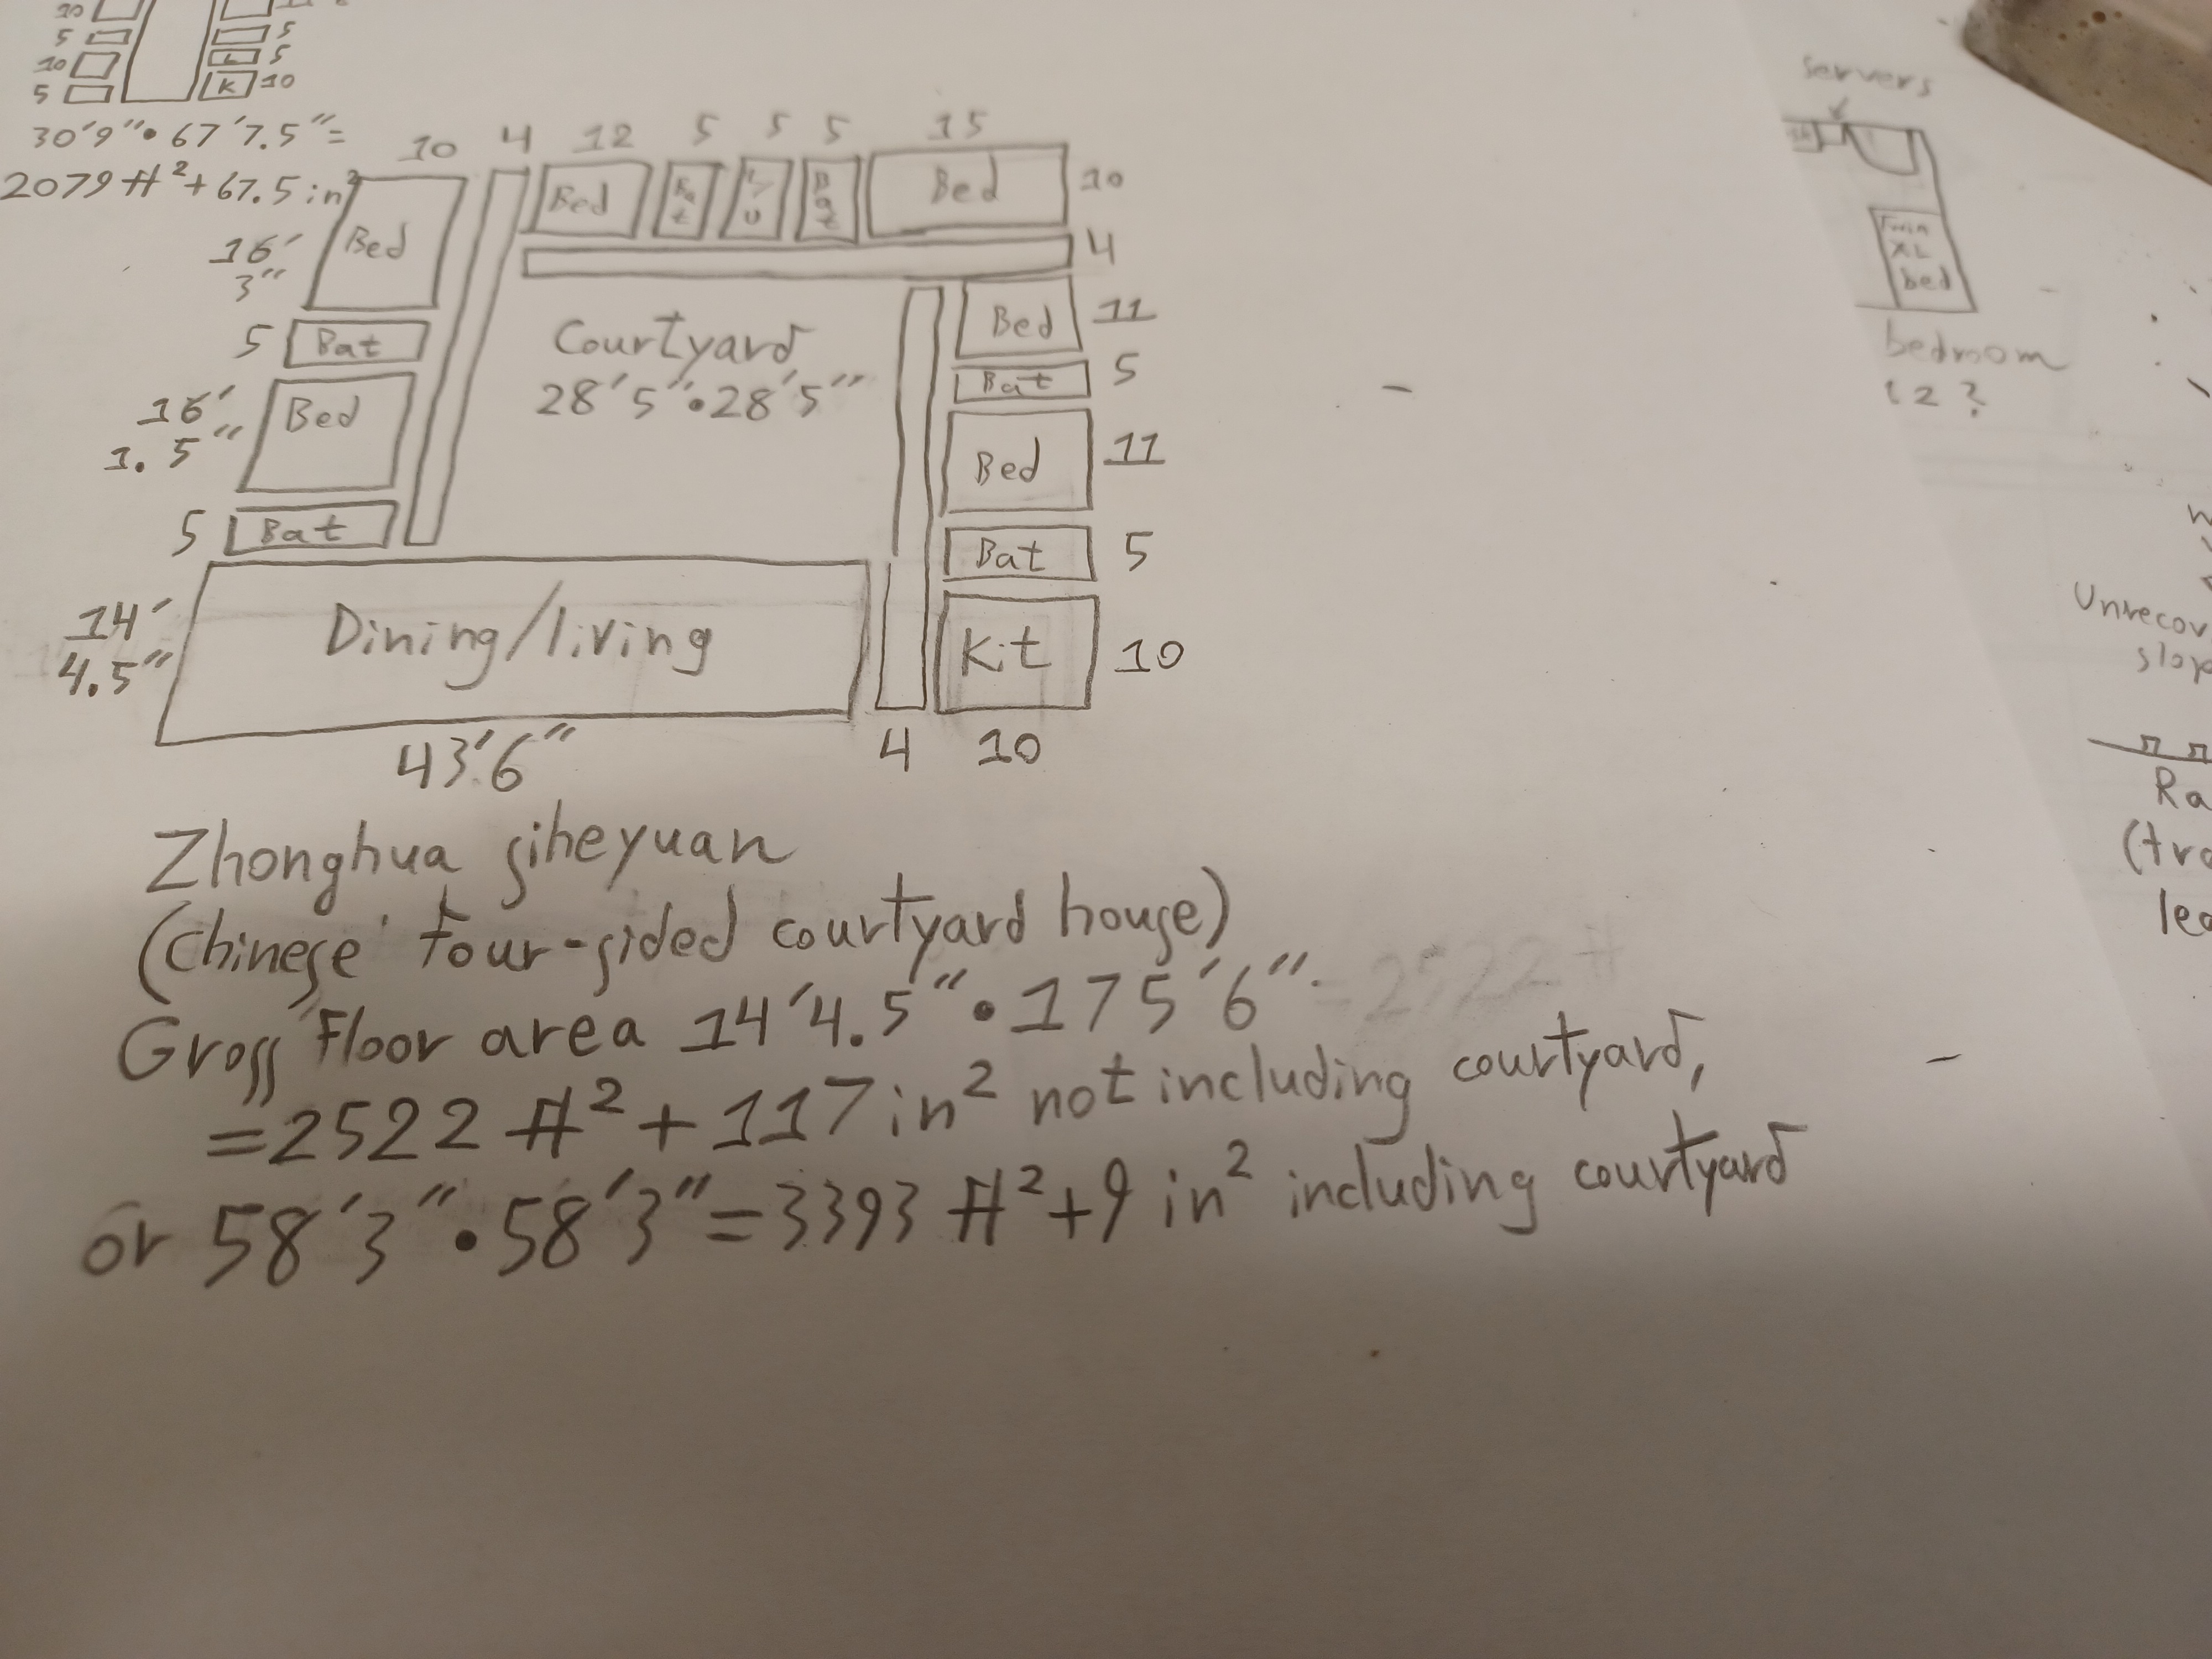 10
5
5
10
5
5
K
10
5
30'9"•67'7.5"=
2079 ft²+67.5 in²
10
4
12
5
5
5
15
Bed
Bed
Bat
L/U
Bat
Bed
10
16'
3"
4
5
Bat
Courtyard
28'5"•28'5"
Bed
11
Bat
5
16'
1.5"
Bed
Bed
11
5
Bat
Bat
5
14'
4.5"
Dining/living
Kit
10
43'6"
4
10
Zhonghua siheyuan
(Chinese four-sided courtyard house)
Gross Floor area 14'4.5"•175'6"
=2522 ft²+117 in² not including courtyard,
or 58'3"•58'3"=3393 ft²+9 in² including courtyard
servers
Twin
XL
bed
bedroom
12?
Unrecov
slop
Ra
(tra
lea